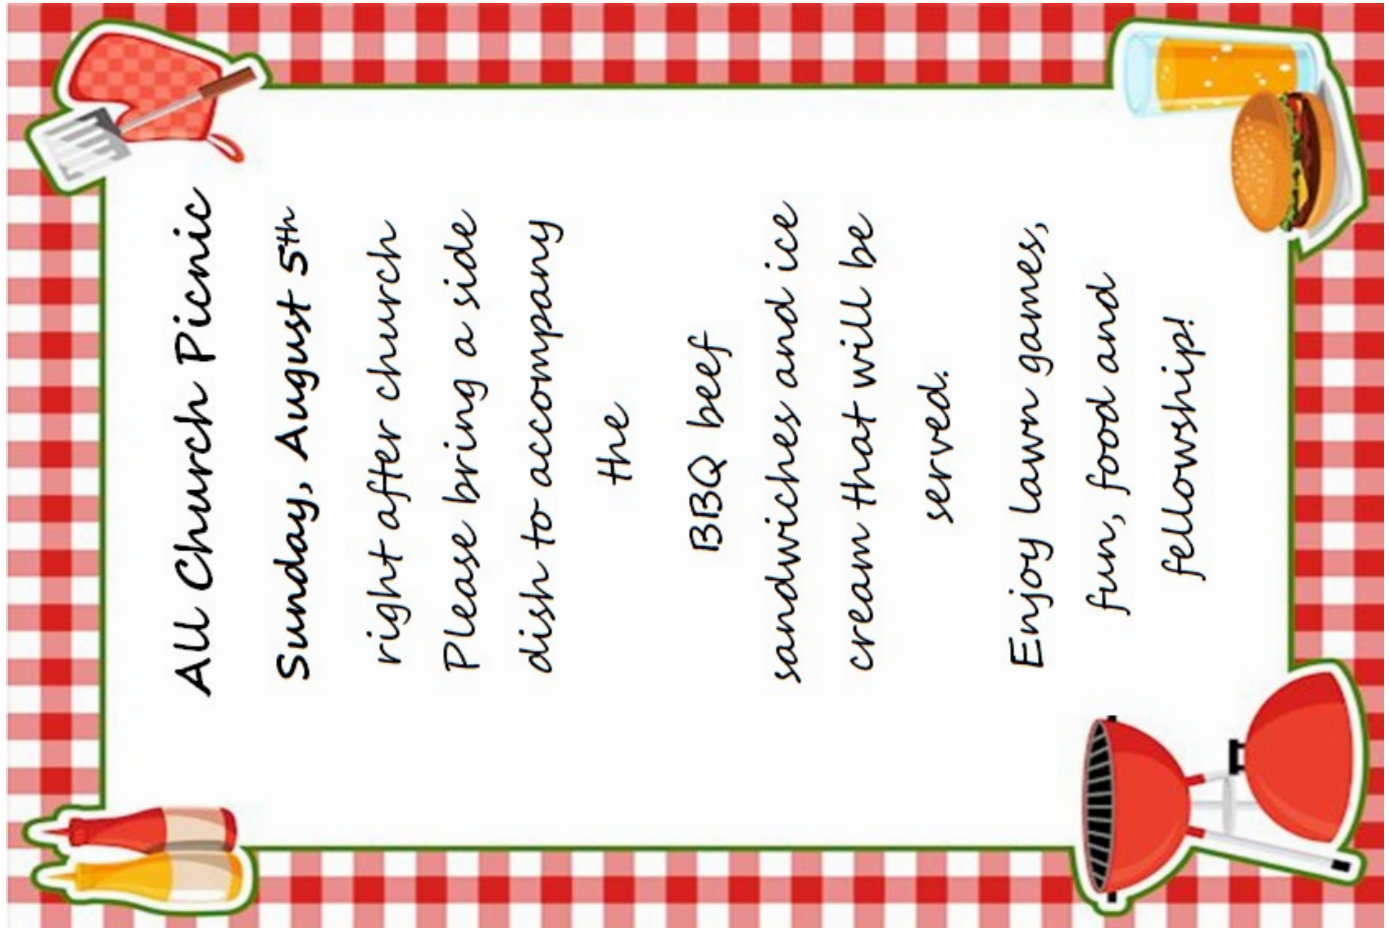 All Church Picnic
Sunday, August 5th
right after church
Please bring a side
dish to accompany
the
BBQ beef
sandwiches and ice
cream that will be
served.
Enjoy lawn games,
fun, food and
fellowship!